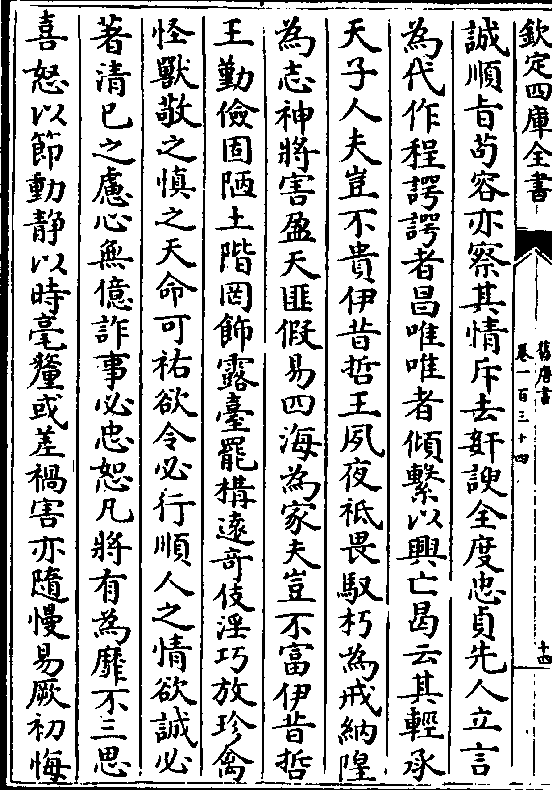 欽定四庫全書
舊唐書
卷一百三十四
十四
誠順旨苟容亦察其情斥去奸諛全度忠貞先人立言
為代作程諤諤者昌唯唯者傾繫以興亡曷云其輕承
天子人夫豈不貴伊昔哲王夙夜祗畏馭朽為戒納隍
為志神將害盈天匪假易四海為家夫豈不富伊昔哲
王勤儉固陋土階罔飾露臺罷構遠奇伎淫巧放珍禽
怪獸敬之慎之天命可祐欲令必行順人之情欲誠必
著清已之慮心無億詐事必忠恕凡將有為靡不三思
喜怒以節動靜以時毫釐或差禍害亦隨慢易厥初悔